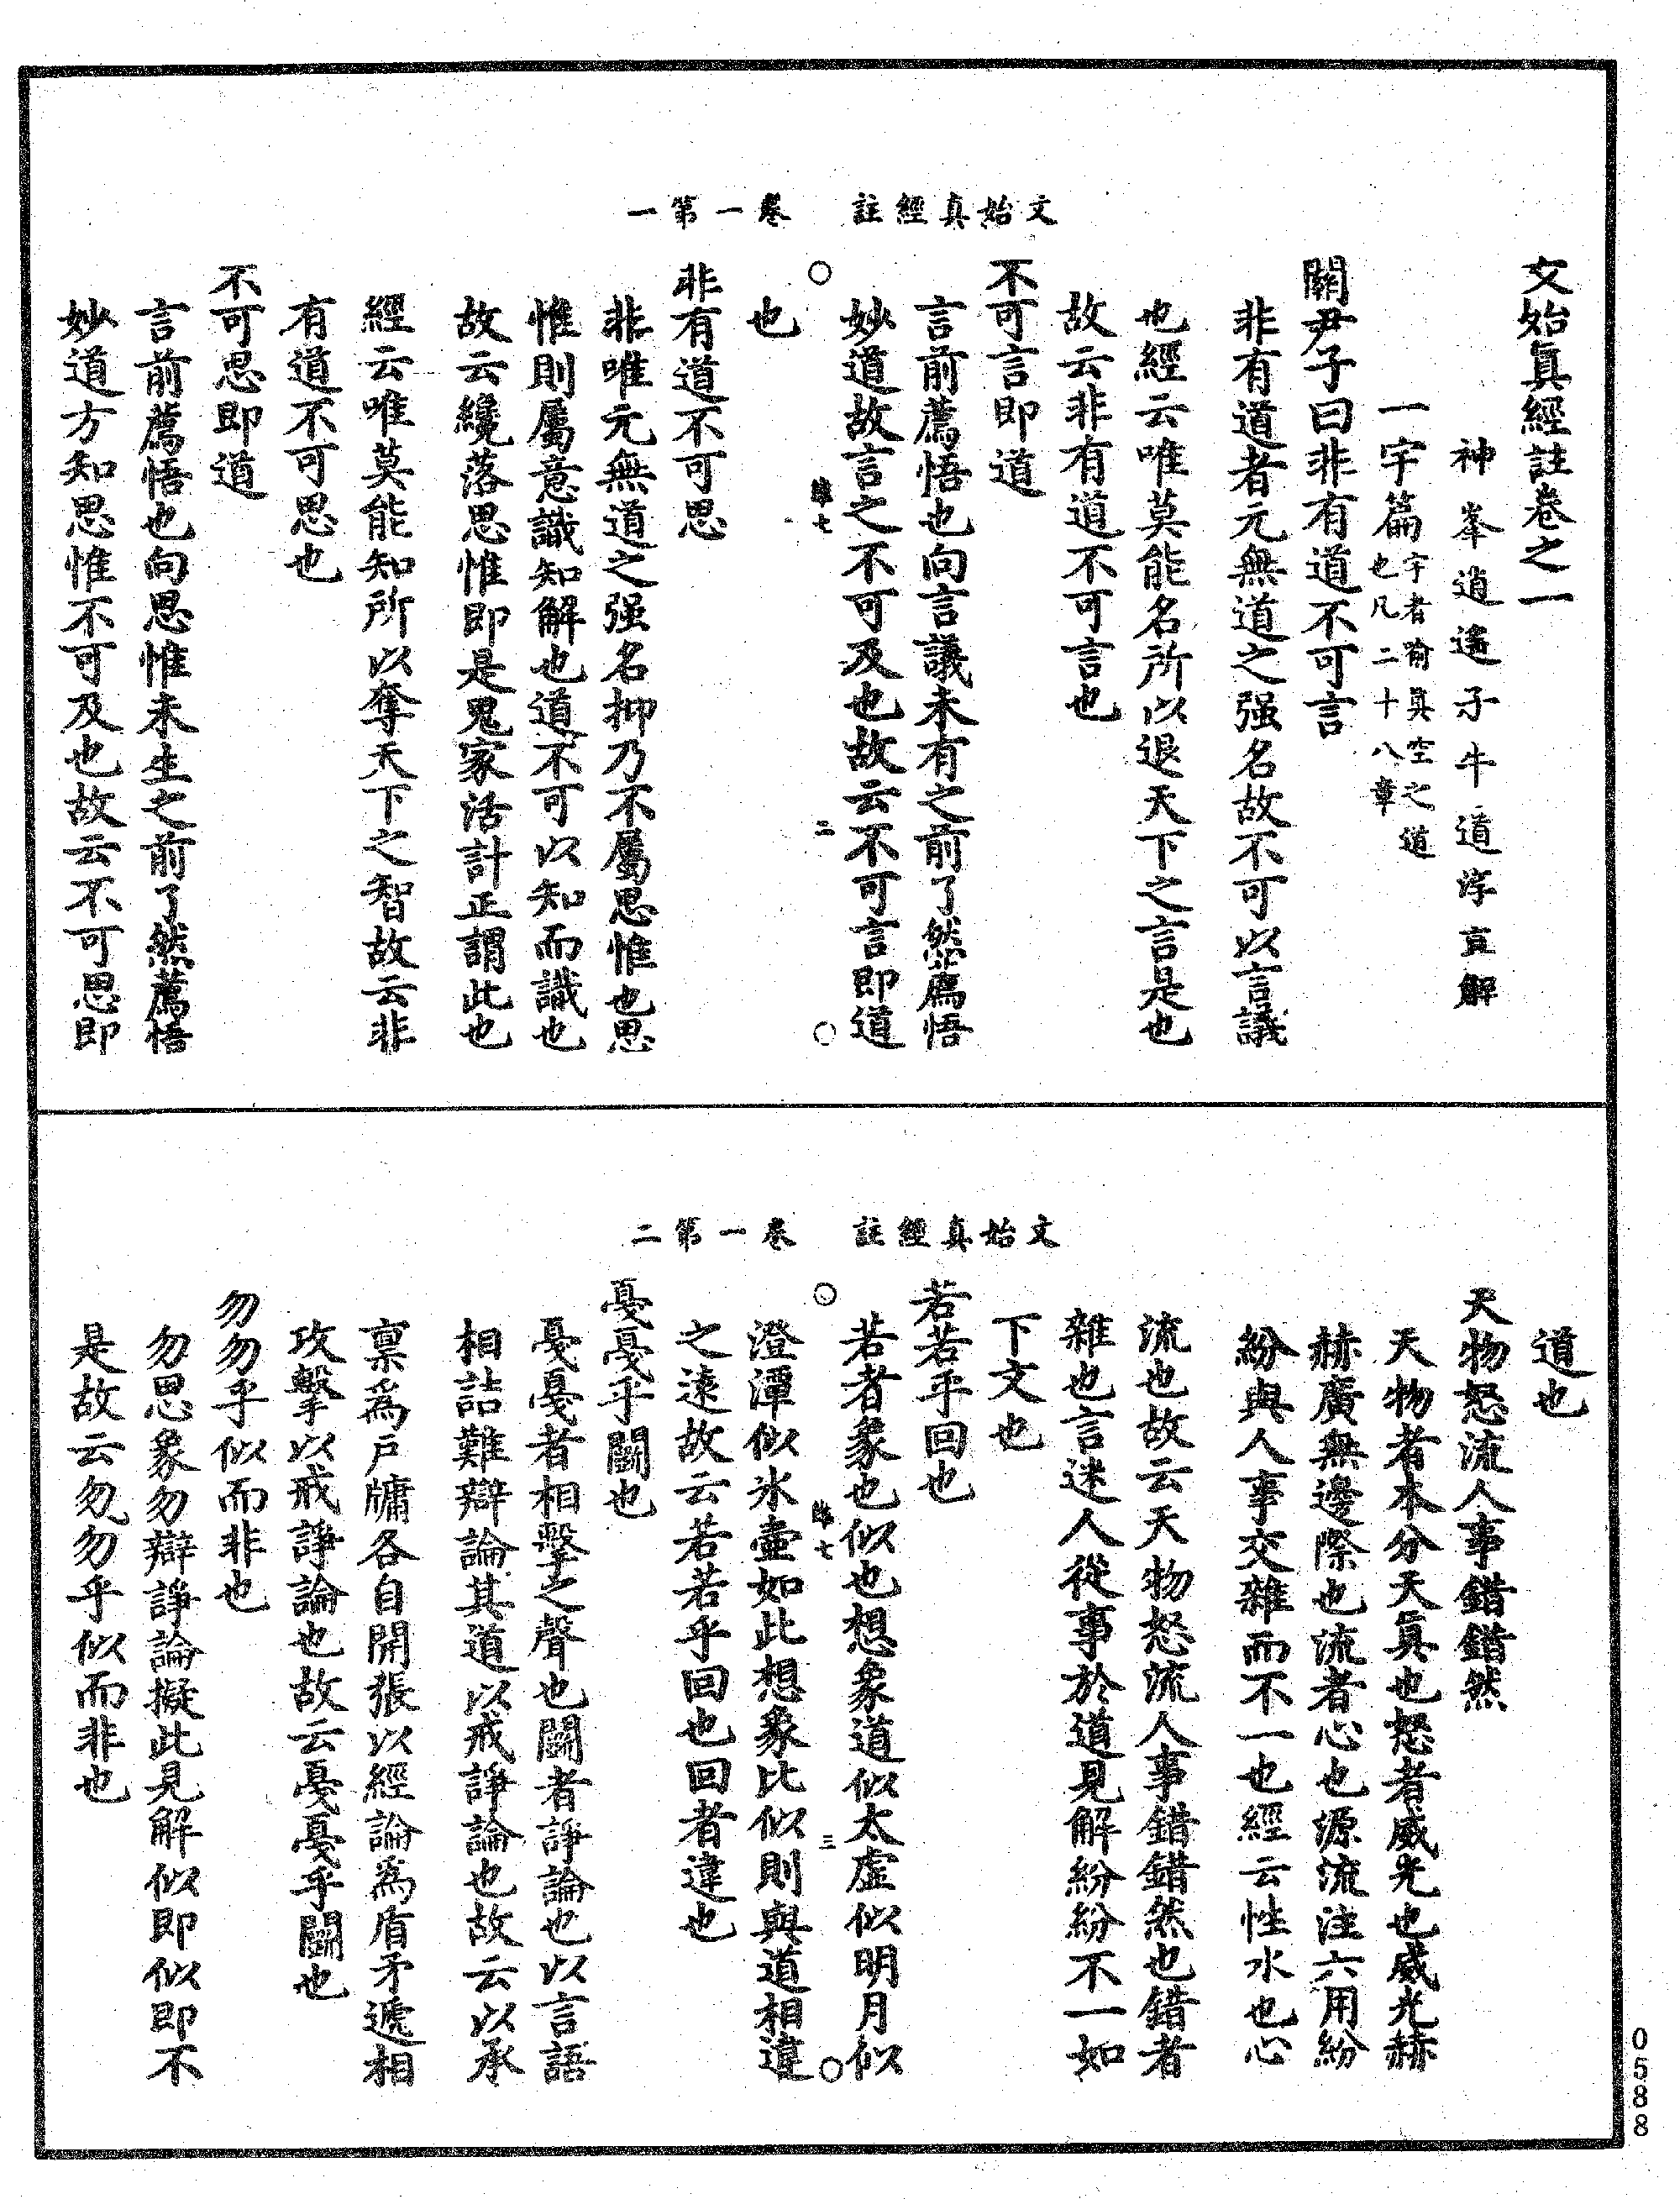 文始真經註　卷一第一
文始眞經註卷之一
神峯逍遙子牛道淳直解
一宇篇宇者喻真空之道也凡二十八章
關尹子曰非有道不可言
非有道者元無道之强名故不可以言議
也經云唯莫能名所以退天下之言是也
故云非有道不可言也
不可言即道
言前薦悟也向言議未有之前了然薦悟
妙道故言之不可及也故云不可言即道
二
也
非有道不可思
非唯元無道之强名抑乃不屬思惟也思
惟則屬意識知解也道不可以知而識也
故云纔落思惟即是鬼家活計正謂此也
經云唯莫能知所以奪天下之智故云非
有道不可思也
不可思即道
言前薦悟也向思惟未生之前了然薦悟
妙道方知思惟不可及也故云不可思即
文始真經註　卷一第二
道也
天物怒流人事錯錯然
天物者本分天眞也怒者威光也威光赫
赫廣無邊際也流者心也源流注六用紛
紛與人事交雜而不一也經云性水也心
流也故云天物怒流人事錯錯然也錯者
雜也言迷人從事於道見解紛紛不一如
下文也
若若乎回也
若者象也似也想象道似太虛似明月似
三
澄潭似氷壷如此想象比似則與道相違
之遠故云若若乎回也回者違也
戞戞乎鬭也
戞戞者相擊之聲也鬭者諍論也以言語
相詰難辯論其道以戒諍論也故云以承
禀爲戶牖各自開張以經論為盾矛遞相
攻擊以戒諍論也故云戞戞乎鬭也
勿勿乎似而非也
勿思象勿辯諍論擬此見解似即似即不
是故云勿勿乎似而非也
0588